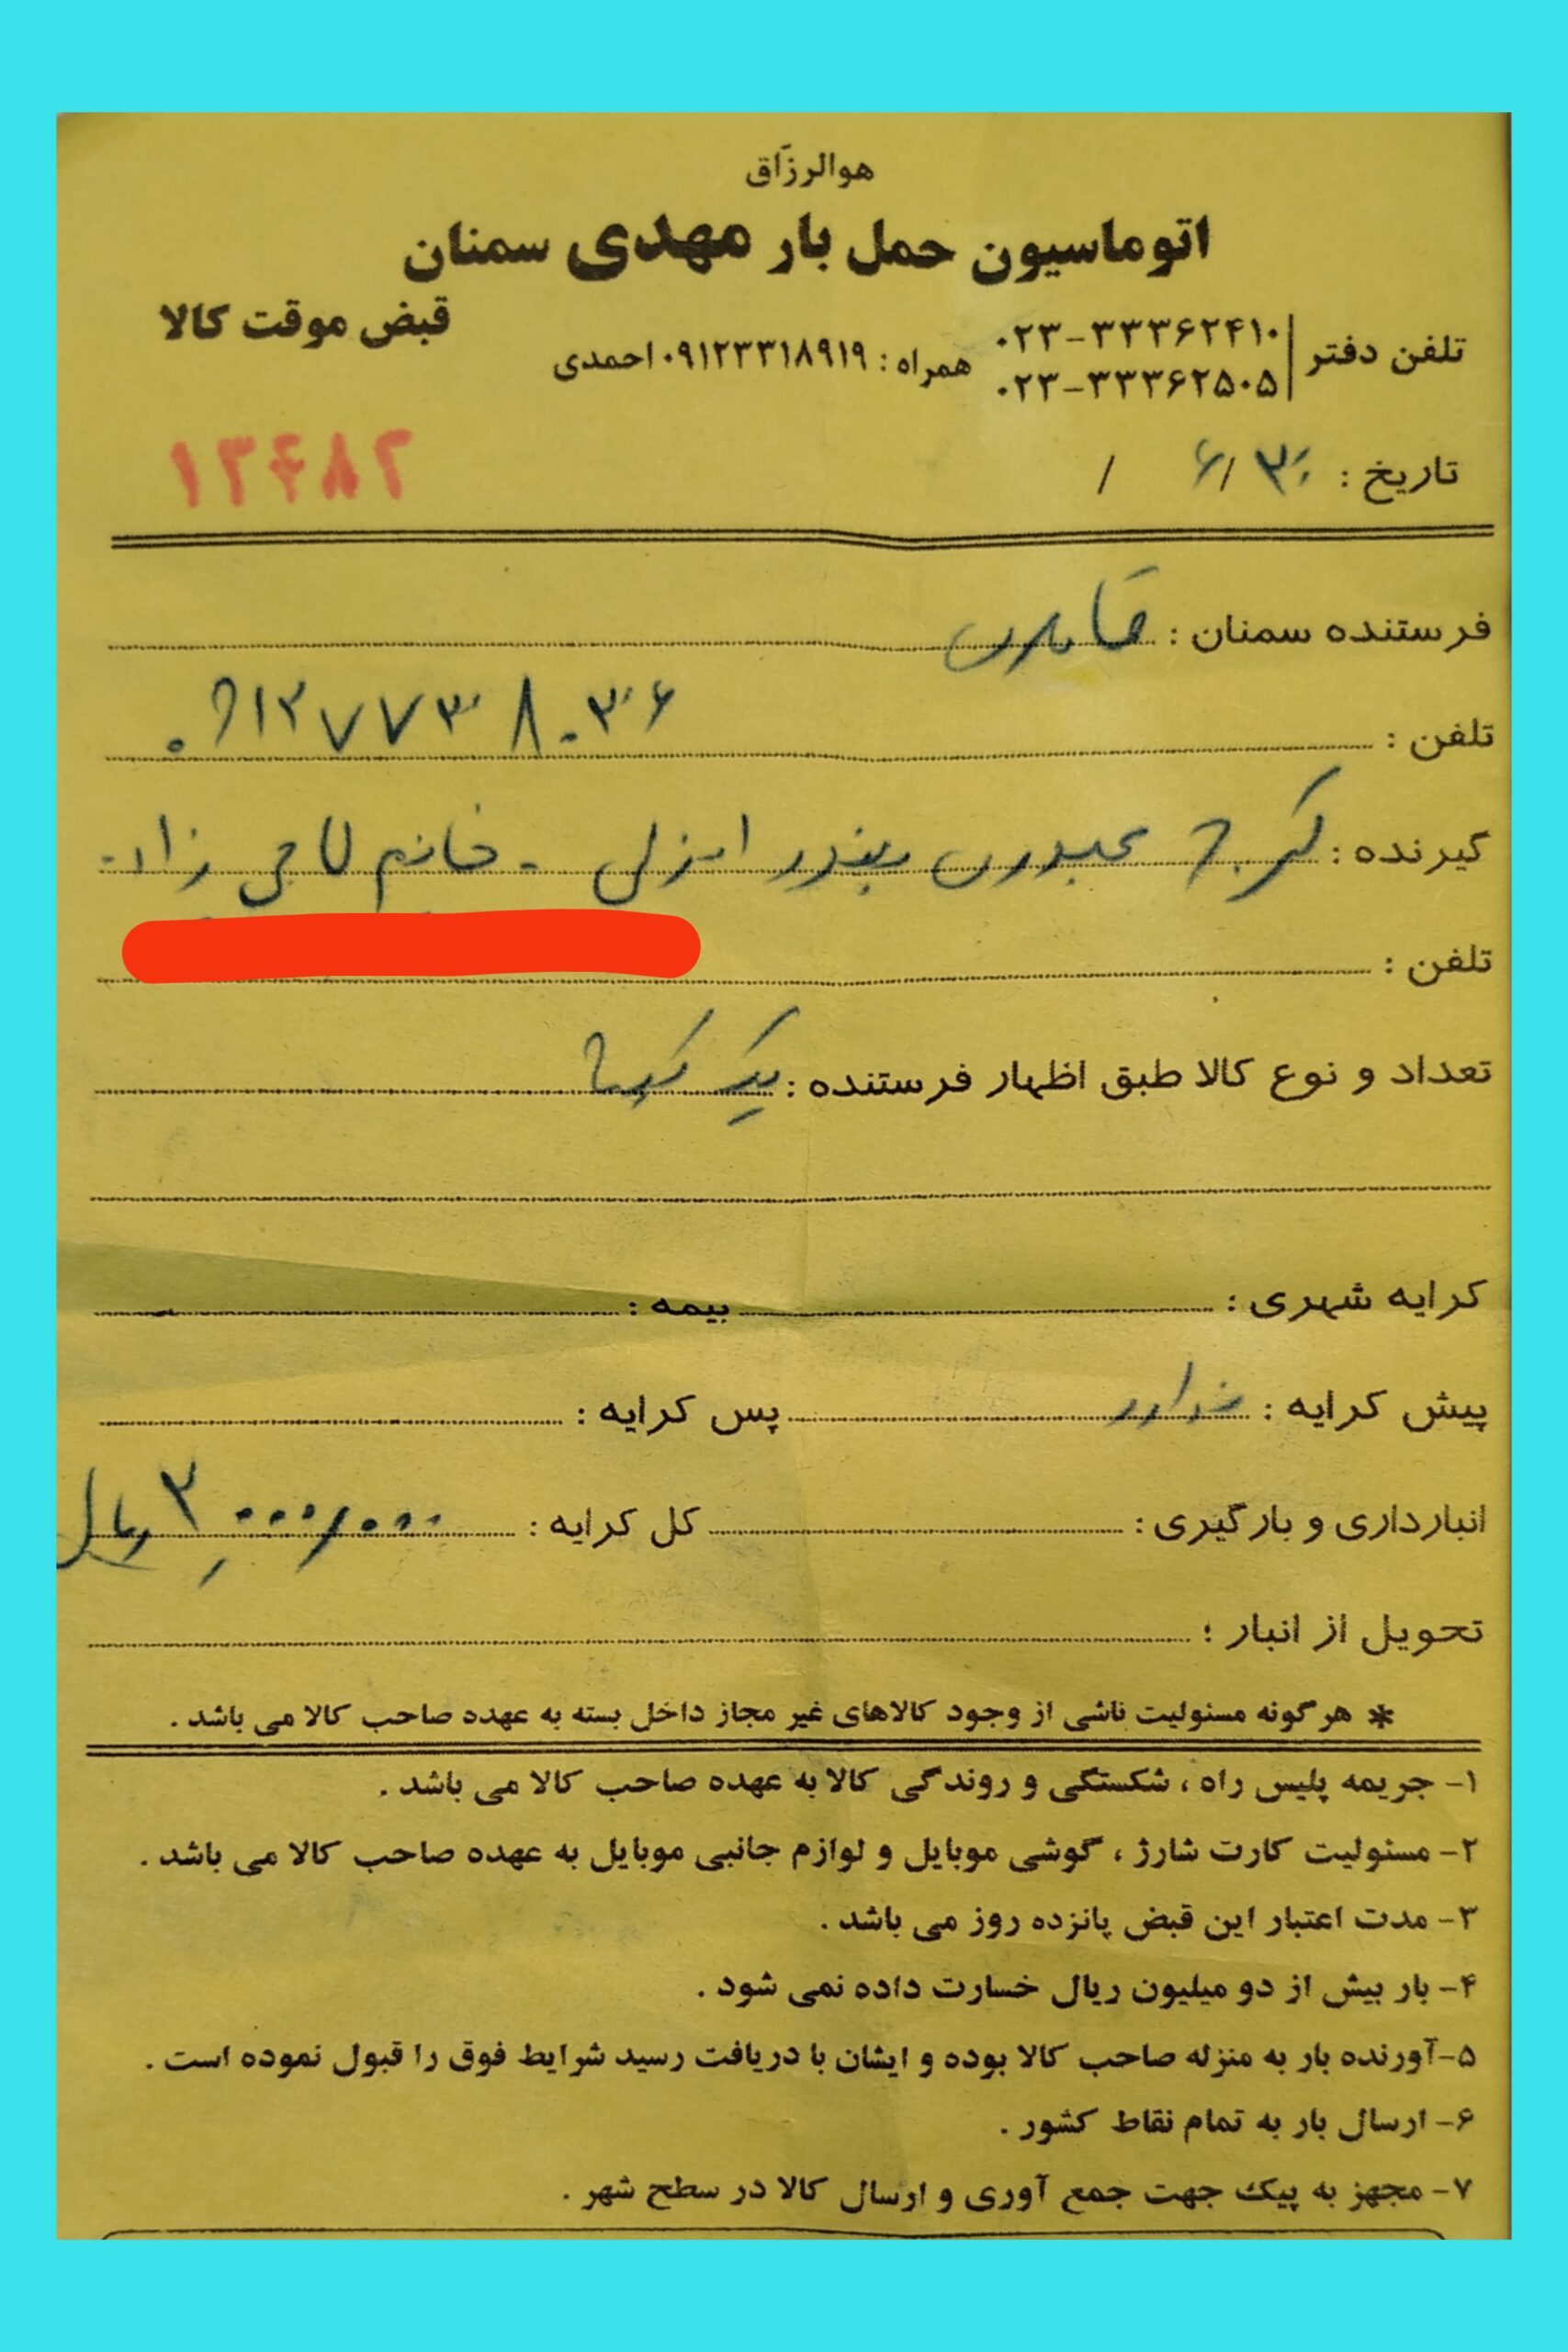 هوالرزّاق
اتوماسیون حمل بار مهدی سمنان
قبض موقت کالا
تلفن دفتر ۰۲۳-۳۳۳۶۲۴۱۰ همراه : ۰۹۱۲۳۳۱۸۹۱۹ احمدی
۰۲۳-۳۳۳۶۲۵۰۵
تاریخ : ۳۰ / ۶ /
۱۳۴۸۲
فرستنده سمنان :
تلفن : ۰۹۱۲۷۷۳۸۰۳۶
گیرنده : کرج عبوری بندر انزلی - خانم زاده
تلفن :
تعداد و نوع کالا طبق اظهار فرستنده : یک
کرایه شهری : بیمه :
پیش کرایه : ندارد پس کرایه :
انبارداری و بارگیری : کل کرایه : ۳,۰۰۰/۰۰۰ ریال
تحویل از انبار :
* هرگونه مسئولیت ناشی از وجود کالاهای غیر مجاز داخل بسته به عهده صاحب کالا می باشد .
۱- جریمه پلیس راه ، شکستگی و روندگی کالا به عهده صاحب کالا می باشد .
۲- مسئولیت کارت شارژ ، گوشی موبایل و لوازم جانبی موبایل به عهده صاحب کالا می باشد .
۳- مدت اعتبار این قبض پانزده روز می باشد .
۴- بار بیش از دو میلیون ریال خسارت داده نمی شود .
۵-آورنده بار به منزله صاحب کالا بوده و ایشان با دریافت رسید شرایط فوق را قبول نموده است .
۶- ارسال بار به تمام نقاط کشور .
۷- مجهز به پیک جهت جمع آوری و ارسال کالا در سطح شهر .